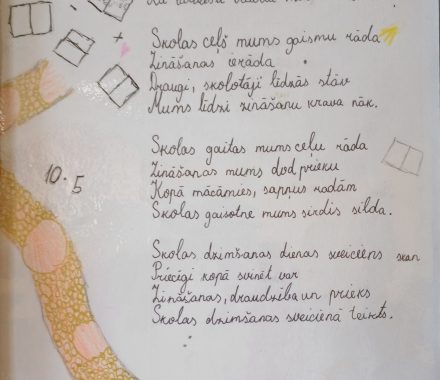 Skolas ceļš mums gaismu rāda
Zināšanas ierāda
Draugi, skolotāji līdzās stāv
Mums līdzi zināšanu krava nāk.
Skolas gaitas mums ceļu rāda
Zināšanas mums dod prieku
Kopā mācāmies, sapņus radām
Skolas gaisotne mums sirdis silda.
10.5
Skolas dzimšanas dienas sveiciens skan
Priecīgi kopā svinēt var
Zināšanas, draudzība un prieks
Skolas dzimšanas sveicienā teikts.